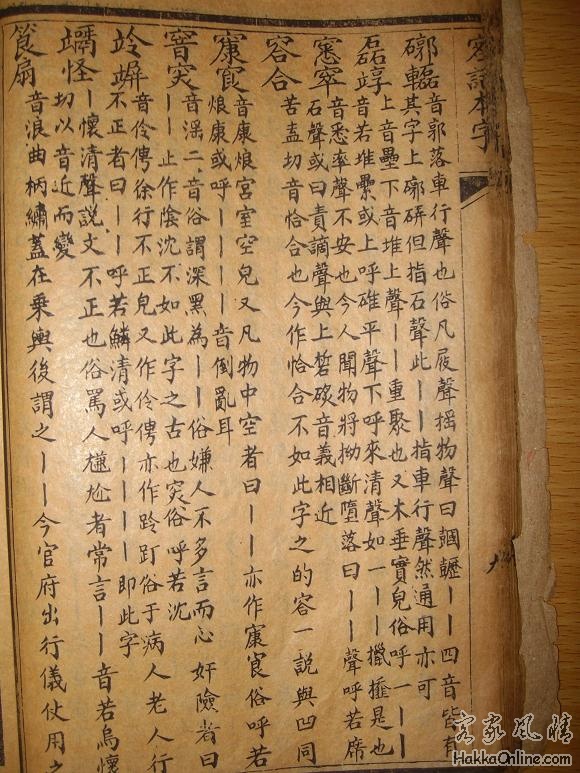 客話本字
音郭落車行聲也俗凡屐聲搖物聲曰——四音皆有
其字上廓硏但指石聲此——指車行聲然通用亦可
磊䇏上音壘下音堆上聲——重聚也又木垂實皃俗呼一——
音若堆纍或上呼碓平聲下呼來清聲如一——是也
音悉率聲不安也今人聞物將拗斷墮落曰——聲呼若席
石聲或曰責謫聲與上音義相近
容合苦盍切音恰合也今作恰合不如此字之的容一說與凹同
音康烺宮室空皃又凡物中空者曰——亦作俗呼若
烺康或呼————音倒亂耳
窨窔音淫二音俗謂深黑為——俗嫌人不多言而心奸險者曰
——止作陰沈不如此字之古也窔俗呼若沈
竛竮音伶俜徐行不正皃又作伶俜亦作跉俗于病人老人行
不正者曰——呼若鱗清或呼————即此字
怪—懷清聲說文不正也俗罵人尷尬者常言——音若烏懷
切以音近而變
筤扇音浪曲柄繡蓋在乘輿後謂之——今官府出行儀仗用之
客家風情
HakkaOnline.com